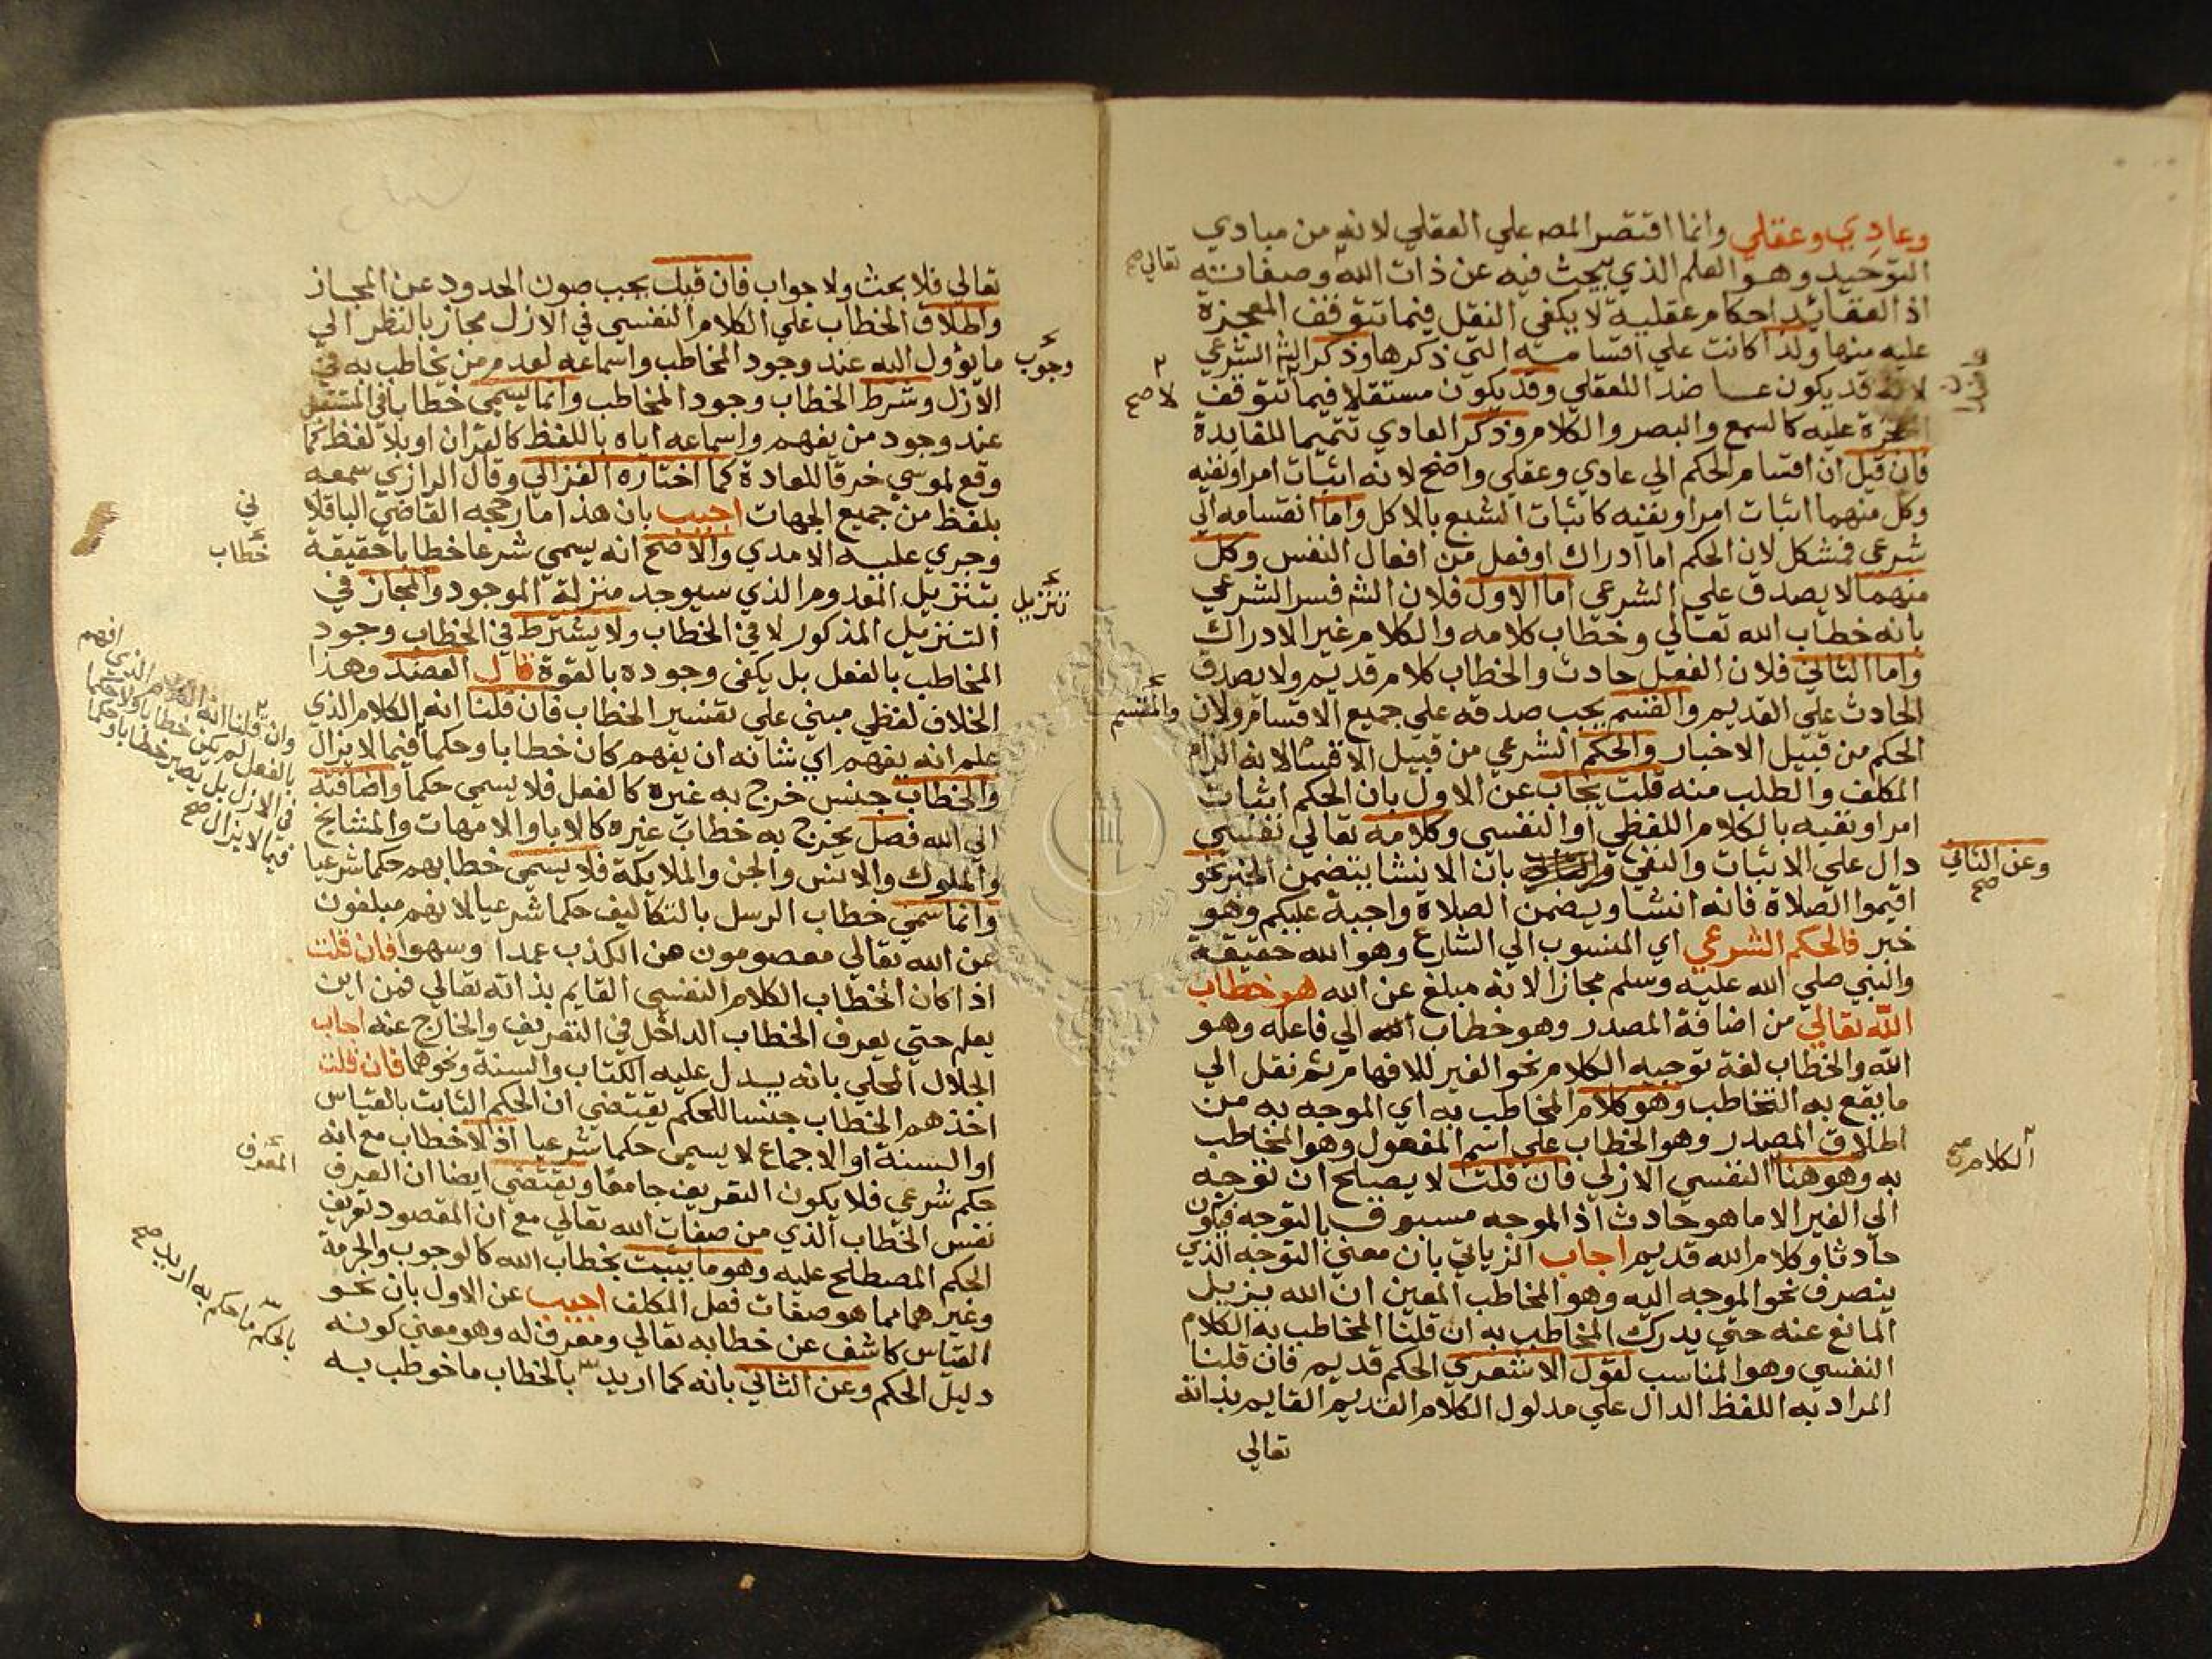 وعادي وعقلي وانما اقتصر المصه علي العقلي لانه من مبادي
التوحيد وهو العلم الذي يبحث فيه عن ذات الله وصفاته
تعالي صح
اذ العقائد احكام عقلية لا يكفي النقل فيما تتوقف المعجزة
عليه منها ولذا كانت علي اقسامه التي ذكرها وذكر الشرعي
لانه قد يكون ضد اللعقلي وقد يكون مستقلا فيما تتوقف
لا صح
المعجزة عليه كالسمع والبصر والكلام وذكر العادي تتميما للفايدة
فان قيل ان اقسام الحكم الي عادي وعقلي واضح لانه اثبات امر او نفيه
وكل منهما اثبات امر او نفيه كاثبات الشبع بالاكل واما انقسامه الي
شرعي فمشكل لان الحكم اما ادراك او فعل من افعال النفس وكل
منهما لا يصدق علي الشرعي اما الاول فلان الشه فسر الشرعي
بانه خطاب الله تعالي وخطاب كلامه والكلام غير الادراك
واما الثاني فلان الفعل حادث والخطاب كلام قديم ولا يصدق
الحادث علي القديم والقسم يجب صدقه علي جميع الاقسام ولان
والمقسم
الحكم من قبيل الاخبار والحكم الشرعي من قبيل الانشا لانه الزام
المكلف والطلب منه قلت يجاب عن الاول بان الحكم اثبات
امر او نفيه بالكلام اللفظي او النفسي وكلامه تعالي نفسي
دال علي الاثبات والنفي بان الانشا يتضمن الخبر نحو
وعن الثاني صح
اقيموا الصلاة فانه انشا ويتضمن الصلاة واجبة عليكم وهو
خبر فالحكم الشرعي اي المنسوب الي الشارع وهو الله حقيقة
والنبي صلي الله عليه وسلم مجازا لانه مبلغ عن الله هو خطاب
الله تعالي من اضافة المصدر وهو خطاب الي فاعله وهو
الله والخطاب لغة توجيه الكلام نحو الغير للافهام ثم نقل الي
ما يقع به التخاطب وهو كلام المخاطب به اي الموجه به من
اطلاق المصدر وهو الخطاب علي اسم المفعول وهو المخاطب
الكلام صح
به وهو هنا النفسي الازلي فان قلت لا يصلح ان توجه
الي الغير الا ما هو حادث اذ الموجه مسبوق بالتوجه فيكون
حادثا وكلام الله قديم اجاب الزياتي بان معني التوجه الذي
ينصرف نحو الموجه اليه وهو المخاطب المعين ان الله يزيل
المانع عنه حتي يدرك المخاطب به ان قلنا المخاطب به الكلام
النفسي وهو المناسب لقول الاشعري الحكم قديم فان قلنا
المراد به اللفظ الدال علي مدلول الكلام القديم القايم بذاته
تعالي
تعالي فلا بحث ولا جواب فان قيل يجب صون الحدود عن المجاز
واطلاق الخطاب علي الكلام النفسي في الازل مجاز بالنظر الي
ما يؤول اليه عند وجود المخاطب واسماعه لعدم من يخاطب به في
وجوب
الازل وشرط الخطاب وجود المخاطب وانما يسمي خطابا في المستقبل
عند وجود من يفهم واسماعه اياه باللفظ كالقران او بلا لفظ كما
وقع لموسي خرقا للعادة كما اختاره الغزالي وقال الرازي سمعه
بلفظ من جميع الجهات اجيب بان هذا ما رجحه القاضي الباقلا
ني
وجري عليه الامدي والاصح انه يسمي شرعا خطابا حقيقة
خطاب
بتنزيل المعدوم الذي سيوجد منزلة الموجود والمجاز في
تنزيل
التنزيل المذكور لا في الخطاب ولا يشترط في الخطاب وجود
المخاطب بالفعل بل يكفي وجوده بالقوة قال العضد وهذا
الخلاف لفظي مبني علي تفسير الخطاب فان قلنا انه الكلام الذي
علم انه يفهم اي شانه ان يفهم كان خطابا وحكما فيما لا يزال
وان قلنا انه الكلام الذي افهم
بالفعل لم يكن خطابا ولا حكما
في الازل بل يصير خطابا وحكما
فيما لا يزال صح
والخطاب جنس خرج به غيره كالفعل فلا يسمي حكما واضافته
الي الله فصل يخرج به خطاب غيره كالابا والامهات والمشايخ
والملوك والانس والجن والملايكة فلا يسمي خطابهم حكما شرعيا
وانما سمي خطاب الرسل بالتكاليف حكما شرعيا لانهم مبلغون
عن الله تعالي معصومون من الكذب عمدا وسهوا فان قلت
اذا كان الخطاب الكلام النفسي القايم بذاته تعالي فمن اين
يعلم حتي يعرف الخطاب الداخل في التعريف والخارج عنه اجاب
الجلال المحلي بانه يسدل عليه الكتاب والسنة ونحوهما فان قلت
اخذهم الخطاب جنسا للحكم يقتضي ان الحكم الثابت بالقياس
او السنة او الاجماع لا يسمي حكما شرعيا اذ لا خطاب مع انه
حكم شرعي فلا يكون التعريف جامعا ويقتضي ايضا ان العرف
المعرف
نفس الخطاب الذي من صفات الله تعالي مع ان المقصود تعريف
الحكم المصطلح عليه وهو ما يثبت بخطاب الله كالوجوب والحرمة
وغيرهما مما هو صفات فعل المكلف اجيب عن الاول بان نحو
القياس كاشف عن خطابه تعالي ومعرف له وهو معني كونه
دليل الحكم وعن الثاني بانه كما اريد بالخطاب ما خوطب به
بالحكم ما حكم به اريد صح